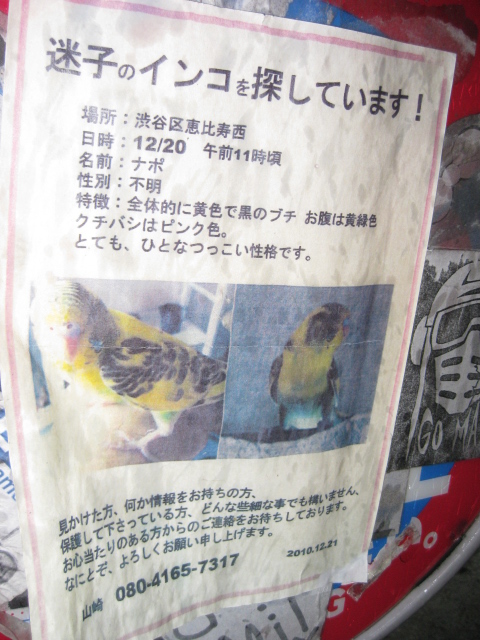 迷子のインコを探しています!
場所：渋谷区恵比寿西
日時：12/20 午前11時頃
名前：ナポ
性別：不明
特徴：全体的に黄色で黒のブチ お腹は黄緑色
クチバシはピンク色。
とても、ひとなつっこい性格です。
見かけた方、何か情報をお持ちの方、
保護して下さっている方、どんな些細な事でも構いません、
お心当たりのある方からのご連絡をお待ちしております。
なにとぞ、よろしくお願い申し上げます。
2010.12.21
山崎 080-4165-7317
GO MA